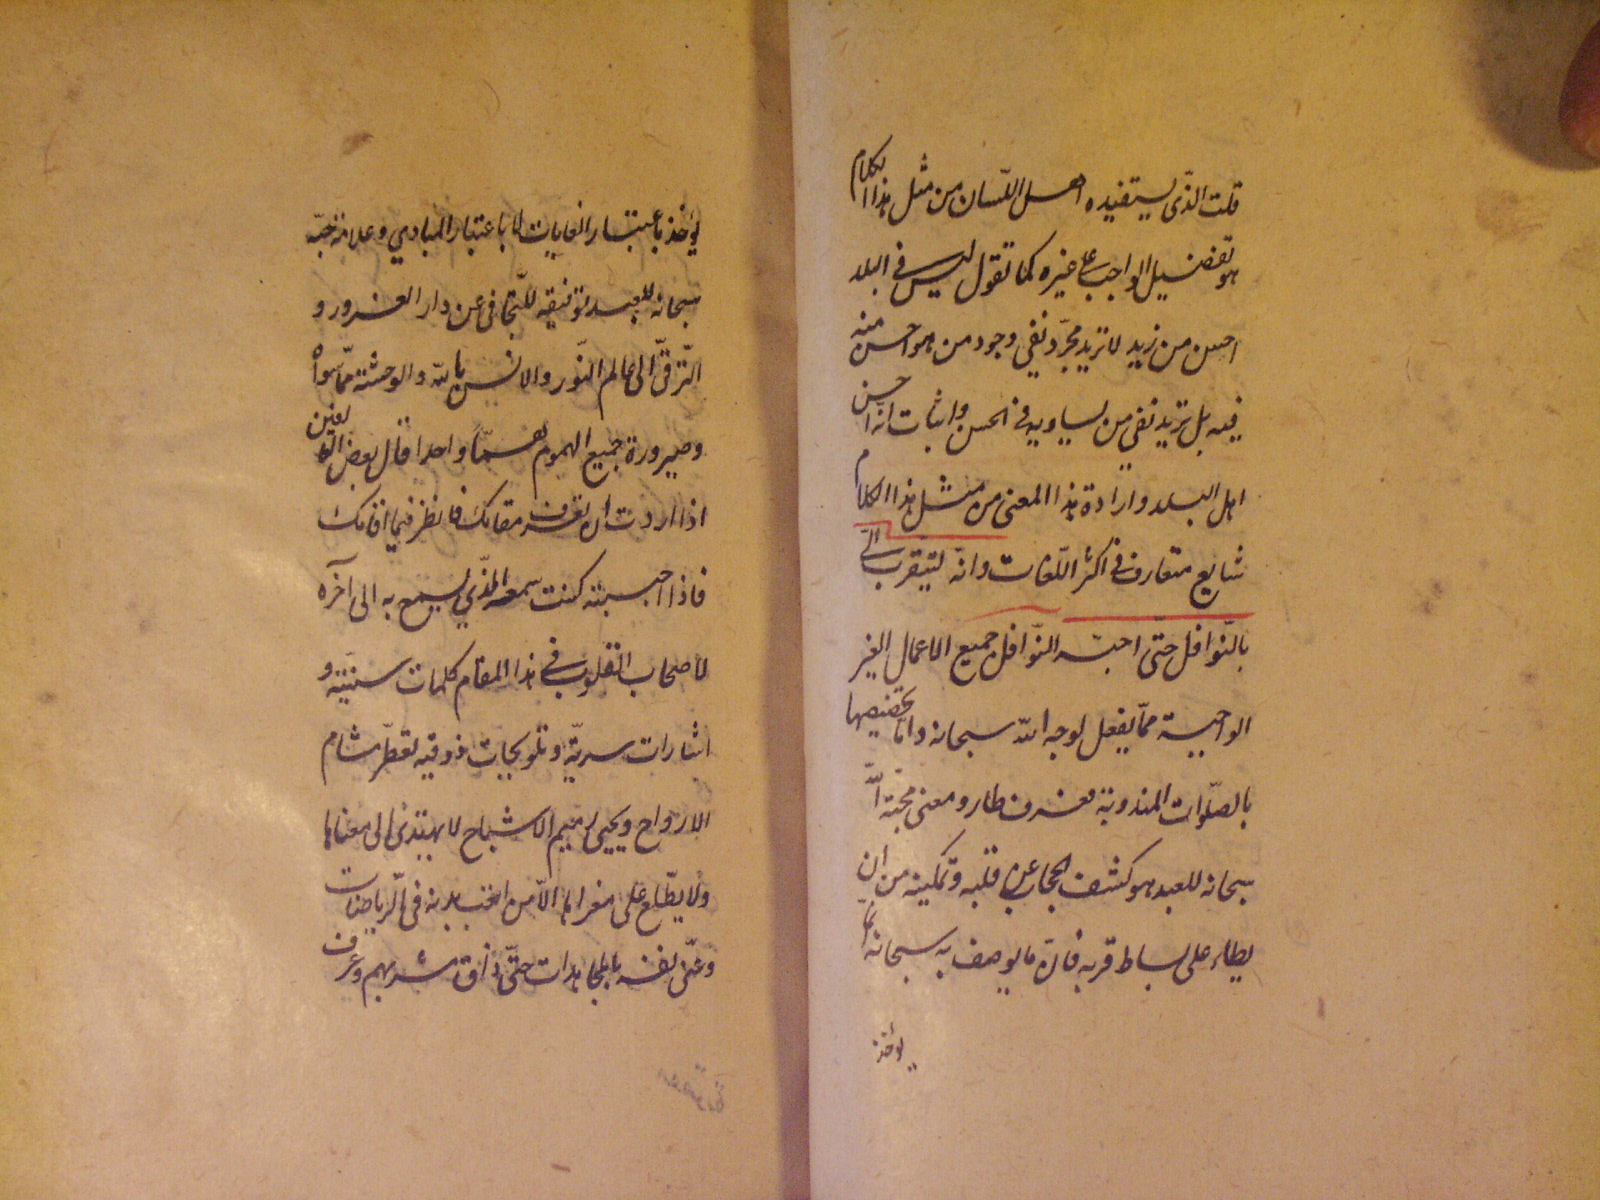 قلت الذّى يستفيده اهل اللّسان من مثل هذا الكلام
هو تفضيل الواجب على غيره كما تقول ليس فى البلد
احسن من زيد لا تريد مجرّد نفى وجود من هو احسن منه
فيه بل تريد نفى من يساويه فى الحسن واثبات انّه احسن
اهل البلد وارادة هذا المعنى من مثل هذا الكلام
شايع متعارف فى اكثر اللّغات وانّه ليتقرّب الىّ
بالنّوافل حتّى احبّه النّوافل جميع الاعمال الغير
الواجبة ممّا يفعل لوجه اللّه سبحانه وامّا تخصيصها
بالصّلوات المندوبة فعرف طار ومعنى محبّة اللّه
سبحانه للعبد هو كشف الحجاب عن قلبه وتمكينه من ان
يطاء على بساط قربه فانّ ما يوصف به سبحانه انّما
يؤخذ
يؤخذ باعتبار الغايات لا باعتبار المبادي وعلامة حبّه
سبحانه للعبد توفيقه للتّجافى عن دار الغرور و
التّرقّى الى عالم النّور والانس باللّه والوحشة ممّا سواه
وصيرورة جميع الهموم همّا واحدا قال بعض العارفين
اذا اردت ان تعرف مقامك فانظر فيما اقامك
فاذا احببته كنت سمعه الذّي يسمع به الى آخره
لاصحاب القلوب فى هذا المقام كلمات سنيّة و
اشارات سريّة وتلويحات ذوقيه تعطّر مشام
الارواح ويحيى رميم الاشباح لا يهتدى الى معناها
ولا يطّلع على مغزاها الاّ من اتعب بدنه فى الرّياضات
وعنّى نفسه بالمجاهدات حتّى ذاق مشربهم وعرف